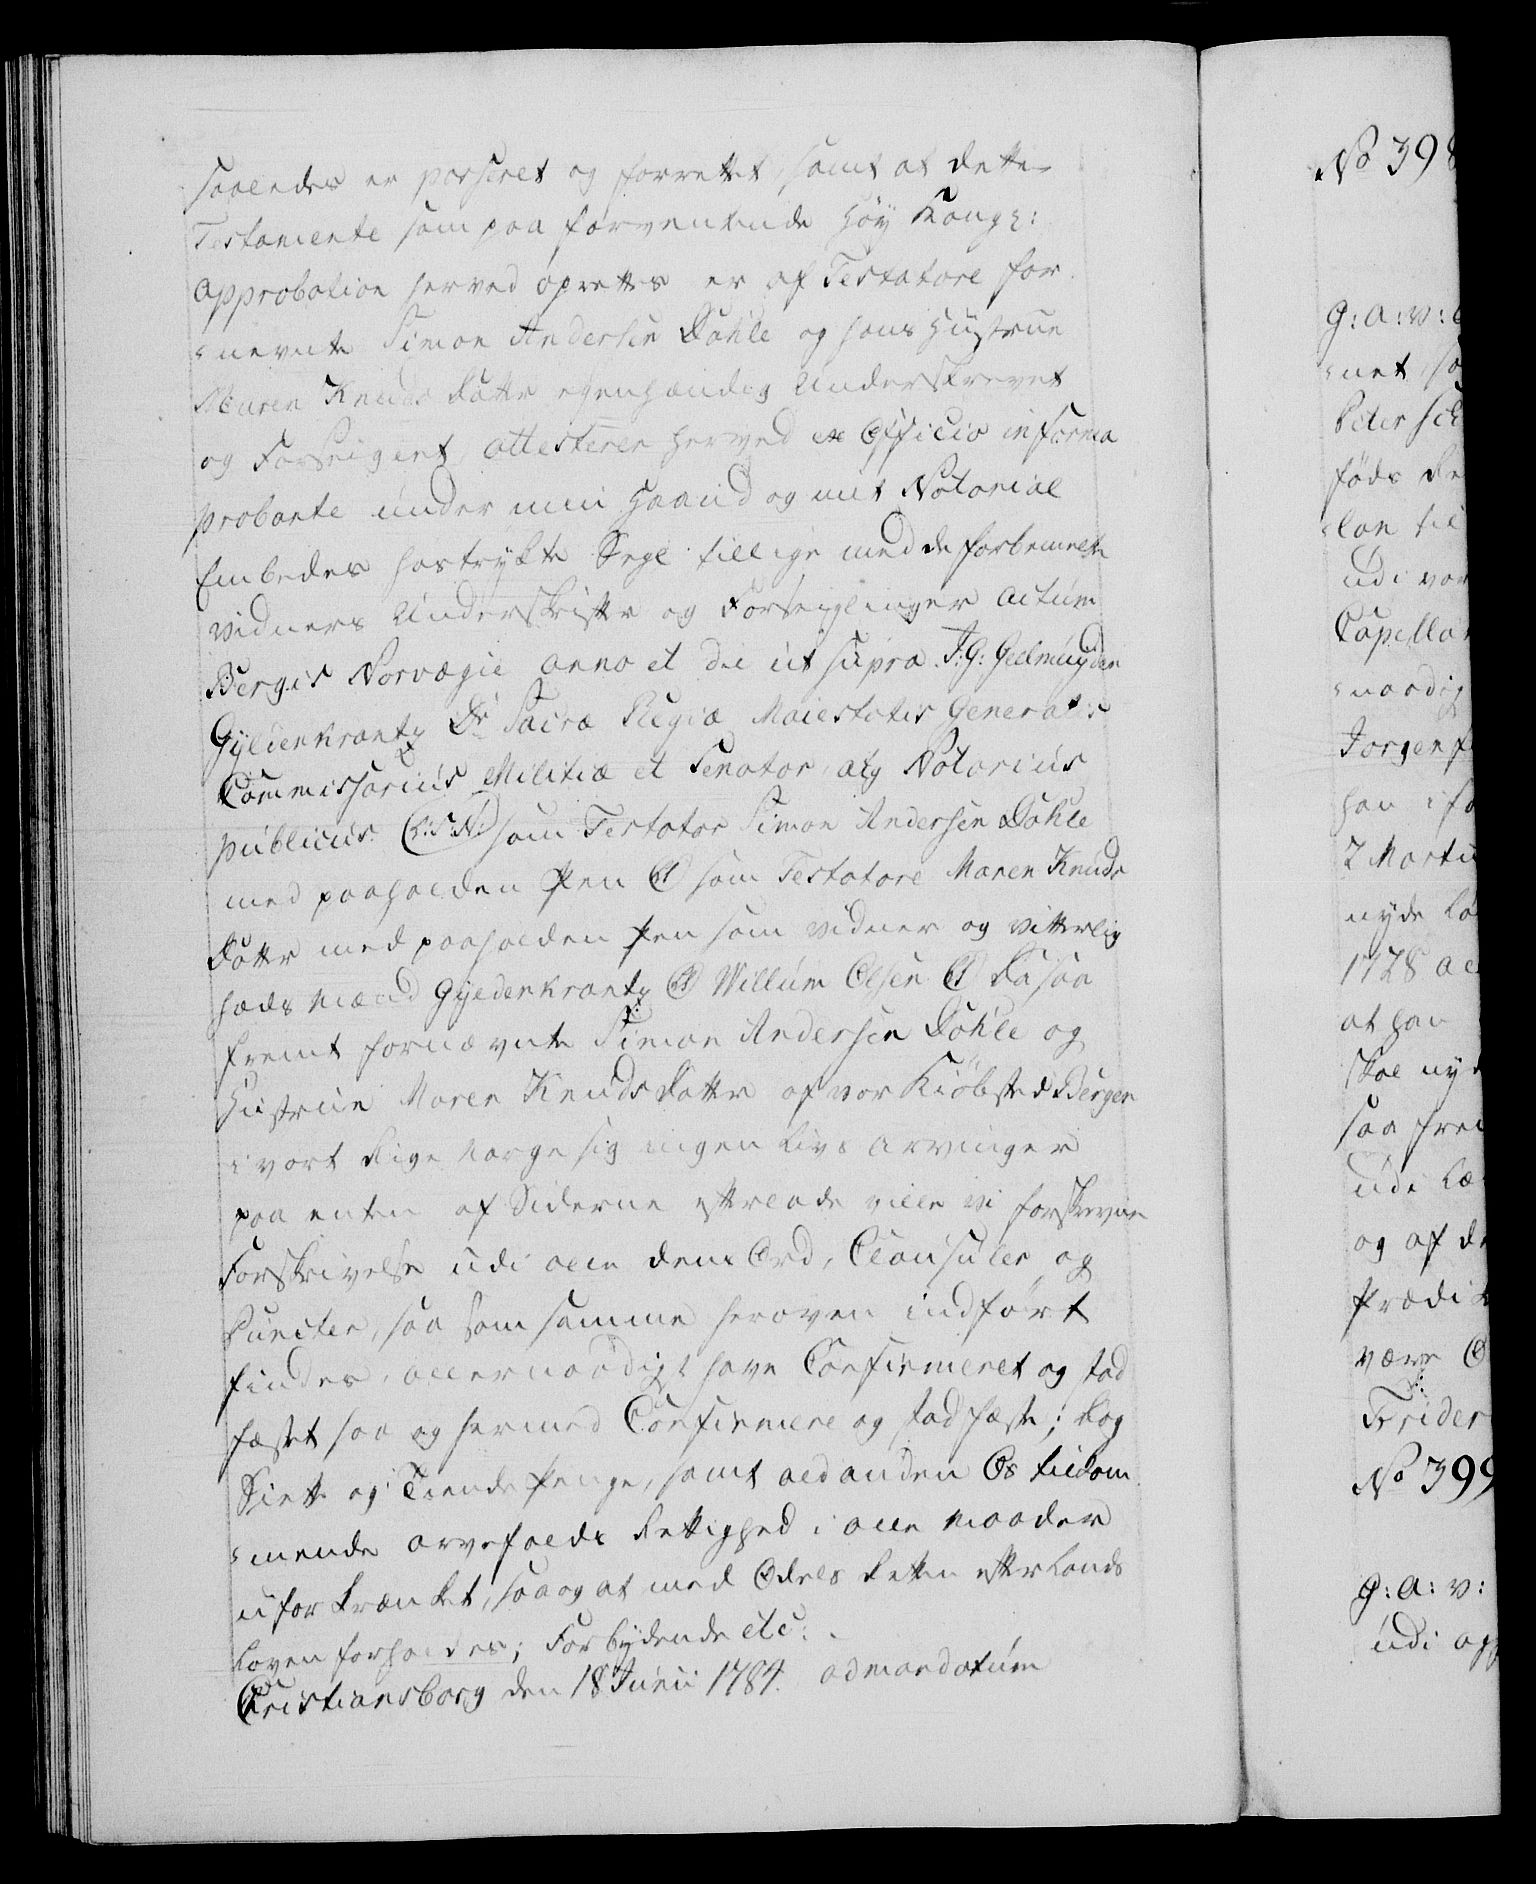 saaledes er passeret og forrettet, samt at dette
Testamente som paa forventende Høy Kongl:
Approbation herved oprettes er af Testatore for
-nevnte Simon Andersen Dahle og hans Hustrue
Maren Knuds Datter egenhændig Underskrevet
og Forseiglet, attesterer herved ex Officio in forma
probante under min Haand og mit Notarial
Embedes hostrykte Segl tillige med de forbemelte
Vidners Underskrifter og Forseiglinger Actum
Bergis Norvægie anno et die ut supra. J: G: Geelmuyden
Gyldenkrantz Dr Sacræ Regiæ Maiestatis General:
Commissarius Militiæ et Senator, atq Notarius
publicus. (L: S: N:) som Testator Simon Andersen Dahle
med paaholden Pen (LS) som Testatore Maren Knuds
Datter med paaholden Pen som vidner og vitterlig
heds Mænd Gyldenkrantz (LS) Willum Olsen (LS) Da saa
fremt fornævnte Simon Andersen Dahle og
Hustrue Maren Knuds Datter af vor Kiøbsted Bergen
i vort Rige Norge sig ingen Livs Arvinger
paa enten af Siderne efterlade ville vi forskrevne
Forskrivelse udi alle dens Ord, Clausuler og
Puncter, saa som samme heroven indført
findes, allernaadigst have Confirmeret og stad
fæstet saa og hermed Confirmere og stadfæste; Dog
Siette og Tiende Penge, samt al anden Os tilkom
-mende arvefalds Rettighed i alle Maader
uforkrænket, saa og at med Odels Retten efter Lands
Loven forholdes; Forbydende etc:
Christiansborg den 18 Junii 1784. ad mandatum
No 398
G: A: v:
-net, sa
Peter Sch
føds De
-lan til
udi vor
Capellan
-naadig
Jørgen
han i
7 Martii
nyde
1728
at han
skal nyde
saa frem
udi
og af de
Prædik
være
Frider
No 399
G: A: v:
udi